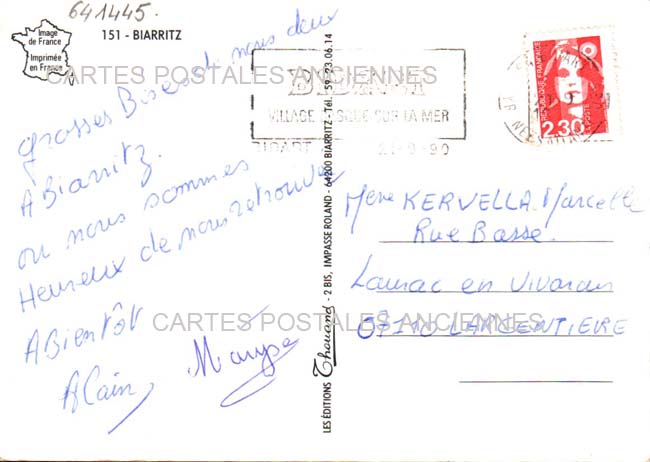 641445.
Image
de France
Imprimée
en France
151 - BIARRITZ
CARTES POSTALES ANCIENNES
grosses Bises de nous deux
A Biarritz.
ou nous sommes
Heureux de nous retrouver
A Bientôt
Alain, Maryse
VILLAGE BASQUE SUR LA MER
BIDART
21-9-90
REPUBLIQUE FRANÇAISE
2,30
LES ÉDITIONS Thouand - 2 BIS, IMPASSE ROLAND - 64200 BIARRITZ - Tél. 59.23.06.14
Mme KERVELLA. Marcelle
Rue Basse.
Laurac en Vivarais
07110 LARGENTIERE
CARTES POSTALES ANCIENNES